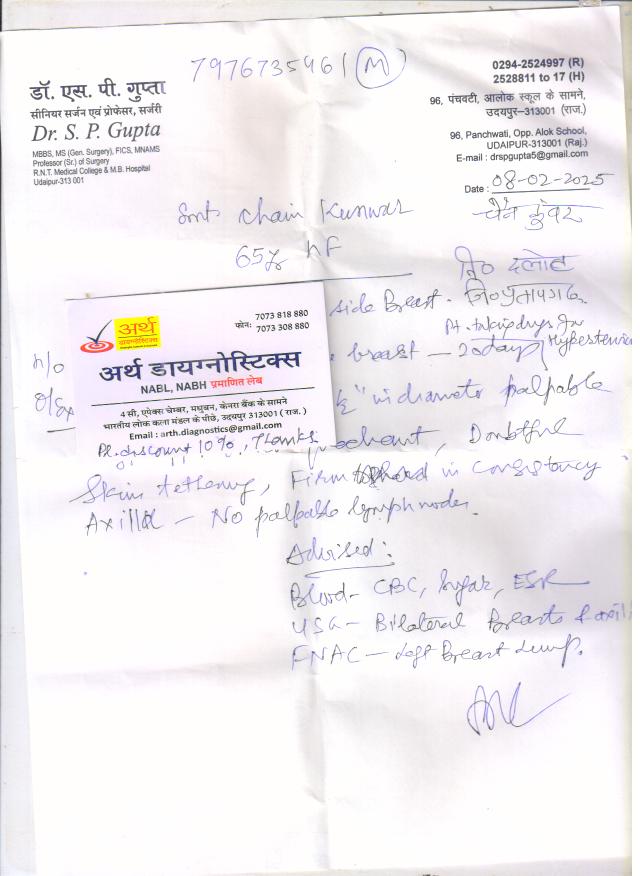 7976735961 (M)
डॉ. एस. पी. गुप्ता
सीनियर सर्जन एवं प्रोफेसर, सर्जरी
Dr. S. P. Gupta
MBBS, MS (Gen. Surgery), FICS, MNAMS
Professor (Sr.) of Surgery
R.N.T. Medical College & M.B. Hospital
Udaipur-313 001
0294-2524997 (R)
2528811 to 17 (H)
96, पंचवटी, आलोक स्कूल के सामने,
उदयपुर–313001 (राज.)
96, Panchwati, Opp. Alok School,
UDAIPUR-313001 (Raj.)
E-mail : drspgupta5@gmail.com
Date : 08-02-2025
Smt chain Kunwar
चैन कुंवर
65y hF
नि० दलोट
side Breast.
Pt. taking drugs for
Hypertension
h/o
breast – 20 days
O/Ex
in diameter palpable
Doubtful
7073 818 880
फोन: 7073 308 880
अर्थ
डायग्नोस्टिक्स
अर्थ डायग्नोस्टिक्स
NABL, NABH प्रमाणित लेब
4 सी, एपेक्स चेम्बर, मधुबन, केनरा बैंक के सामने
भारतीय लोक कला मंडल के पीछे, उदयपुर 313001 ( राज. )
Email : arth.diagnostics@gmail.com
Pl. discount 10%, Thanks
Skin tethering, Firm to hard in consistency
Axilla – No palpable lymph nodes.
Advised :
Blood – CBC, Sugar, ESR
USG – Bilateral Breasts &
FNAC – Left Breast Lump.